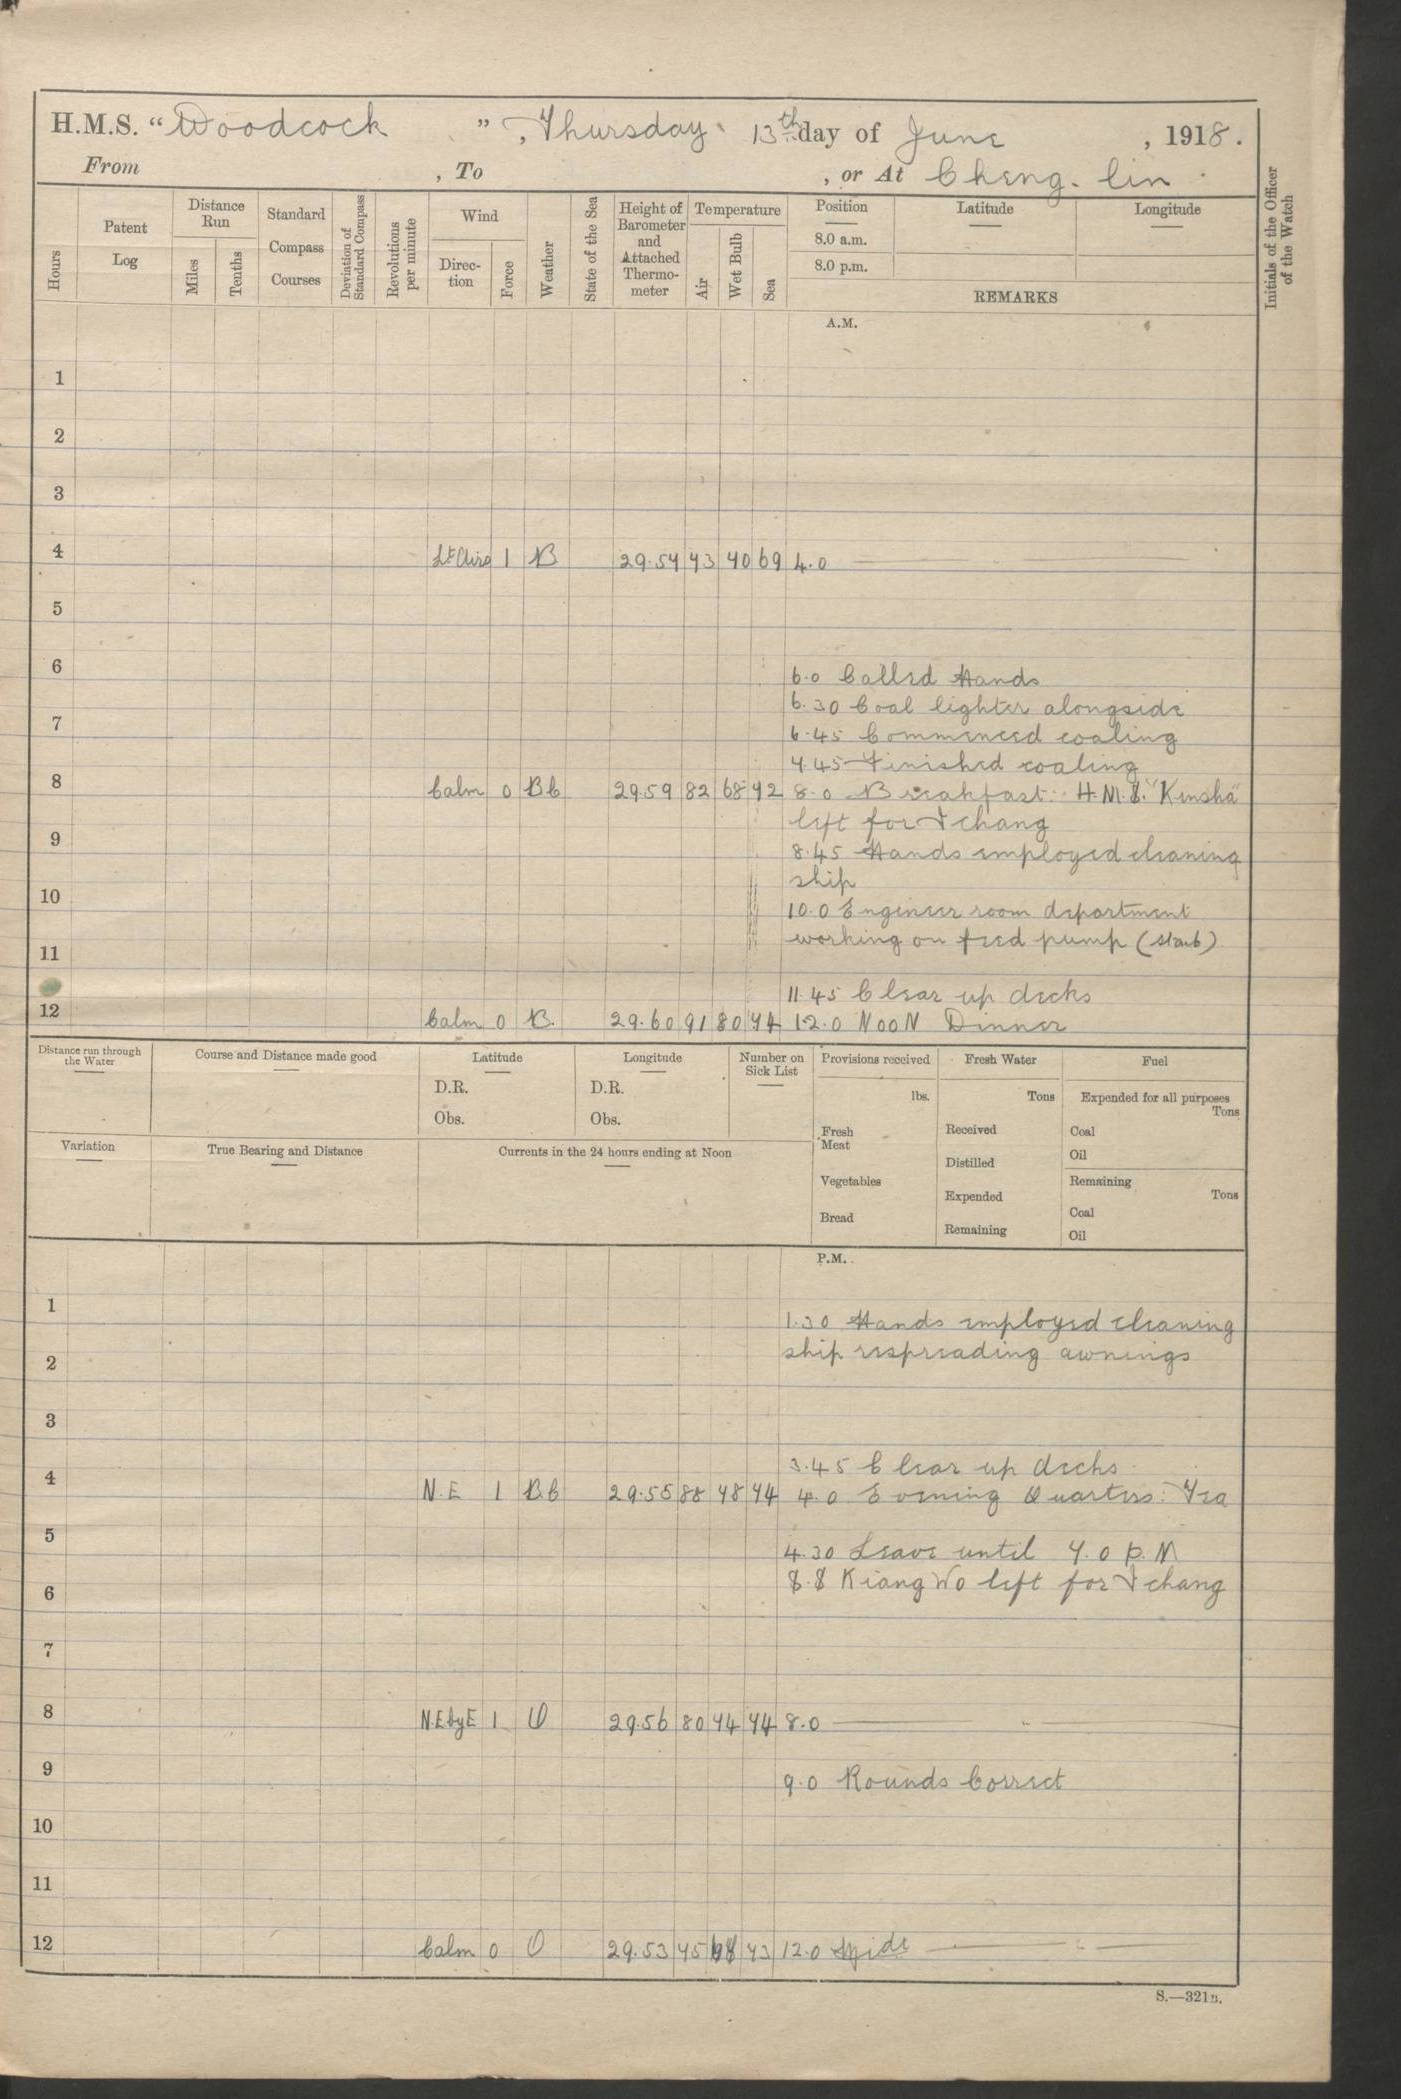 H.M.S. "Woodcock", Thursday 13th day of June, 1918.
From , To , or At Cheng-lin
Hours
Patent Log
Distance Run
Miles
Tenths
Standard Compass Courses
Deviation of Standard Compass
Revolutions per minute
Wind
Direction
Force
Weather
State of the Sea
Height of Barometer and Attached Thermometer
Temperature
Air
Wet Bulb
Sea
Position
8.0 a.m.
8.0 p.m.
Latitude
Longitude
REMARKS
Initials of the Officer of the Watch
A.M.
1
2
3
4 Lt Airs 1 B 29.54 73 70 69 4.0
5
6
6.0 Called Hands
6.30 Coal lighter alongside
7
6.45 Commenced coaling
7.45 Finished coaling
8 Calm 0 Bc 29.59 82 68 72 8.0 Breakfast. H.M.S. "Kinsha"
left for Ichang
9
8.45 Hands employed cleaning
ship
10
10.0 Engineer room department
working on feed pump (starb)
11
11.45 Clear up decks
12 Calm 0 B. 29.60 91 80 74 12.0 NooN Dinner
Distance run through the Water
Course and Distance made good
Latitude
D.R.
Obs.
Longitude
D.R.
Obs.
Number on Sick List
Provisions received
lbs.
Fresh Meat
Vegetables
Bread
Fresh Water
Tons
Received
Distilled
Expended
Remaining
Fuel
Expended for all purposes
Tons
Coal
Oil
Remaining
Tons
Coal
Oil
Variation
True Bearing and Distance
Currents in the 24 hours ending at Noon
P.M.
1
1.30 Hands employed cleaning
2
ship respreading awnings
3
3.45 Clear up decks
4 N.E 1 Bc 29.55 88 78 74 4.0 Evening Quarters: Tea
5
4.30 Leave until 7.0 P.M
8.8 Kiang Wo left for Ichang
6
7
8 N.E by E 1 O 29.56 80 74 74 8.0
9
9.0 Rounds Correct
10
11
12 Calm 0 O 29.53 75 68 73 12.0 Mid
S.—321B.